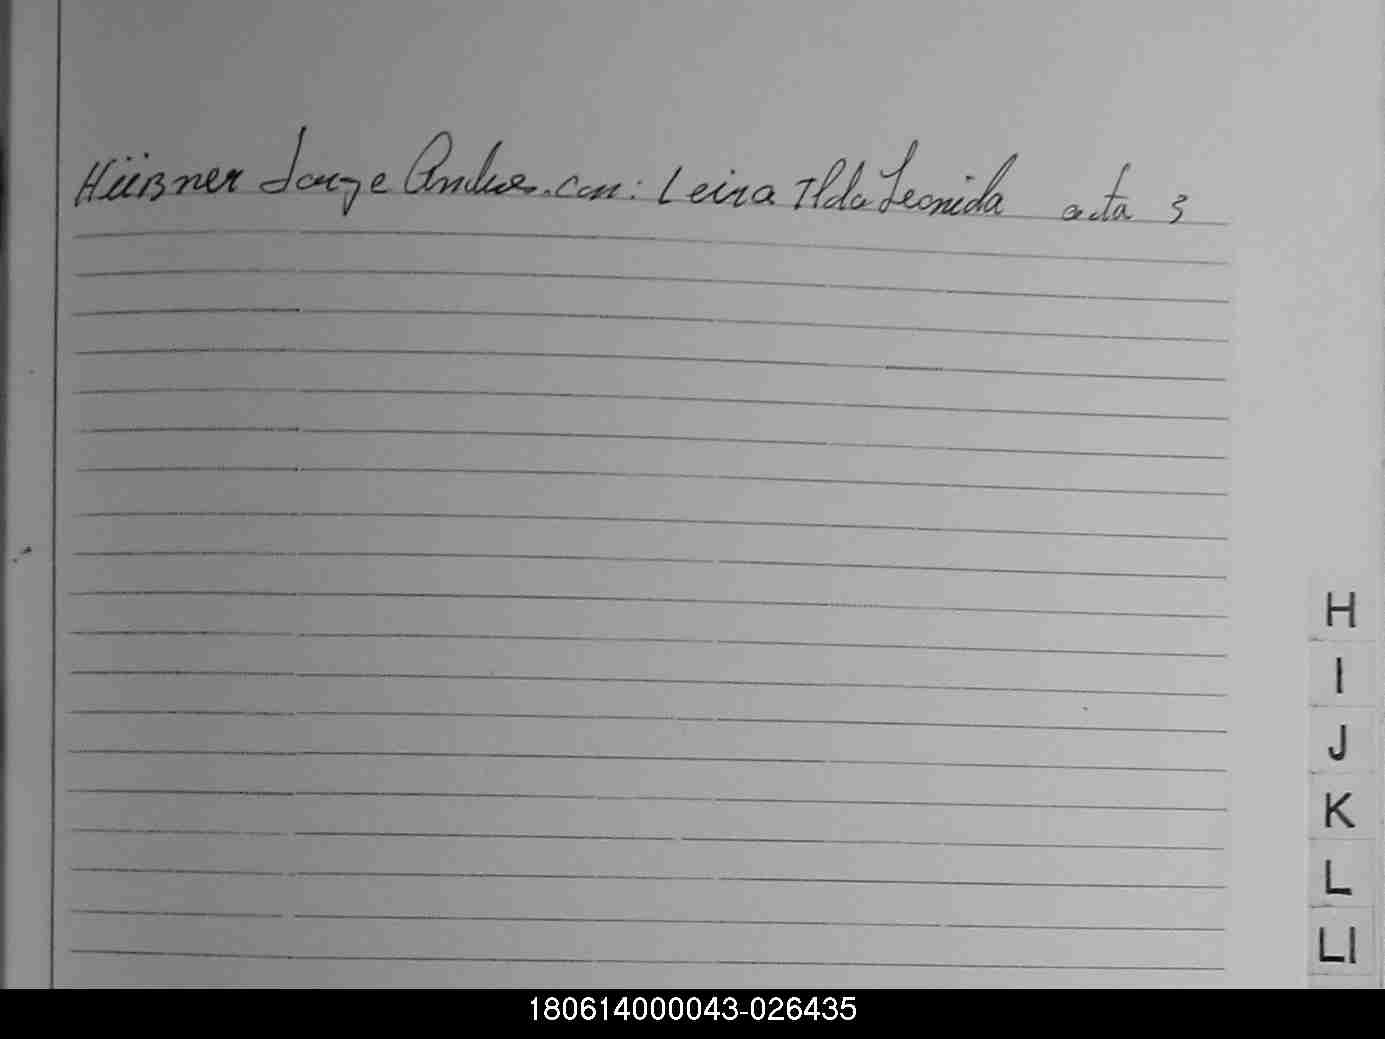 Hübner Jorge Andres. con: Leiva Ilda Leonida acta 3
H
I
J
K
L
Ll
180614000043-026435